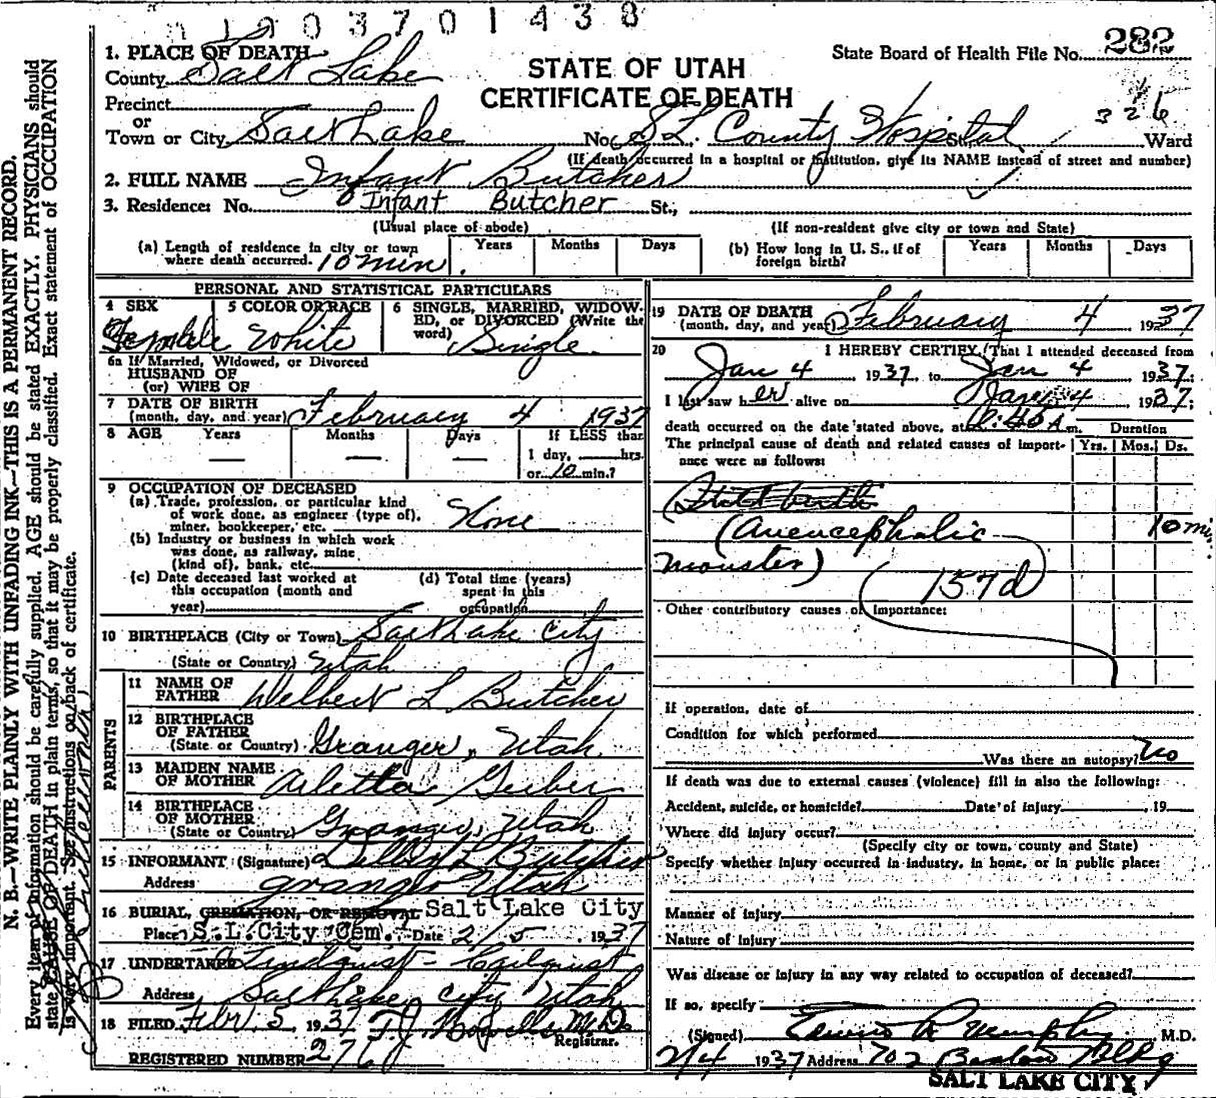 01903701438
282
State Board of Health File No.
STATE OF UTAH
CERTIFICATE OF DEATH
1. PLACE OF DEATH
County Salt Lake
Precinct
or
Town or City Salt Lake No. S L. County Hospital St. 326 Ward
(If death occurred in a hospital or institution, give its NAME instead of street and number)
2. FULL NAME Infant Butcher
3. Residence: No. Infant Butcher St.,
(Usual place of abode) (If non-resident give city or town and State)
(a) Length of residence in city or town where death occurred. 10 min. Years Months Days
(b) How long in U. S., if of foreign birth? Years Months Days
PERSONAL AND STATISTICAL PARTICULARS
4 SEX Female
5 COLOR OR RACE White
6 SINGLE, MARRIED, WIDOWED, or DIVORCED (Write the word) Single
6a If Married, Widowed, or Divorced
HUSBAND OF
(or) WIFE OF
7 DATE OF BIRTH
(month, day, and year) February 4 1937
8 AGE Years — Months — Days — If LESS than
1 day, hrs.
or 10 min.?
9 OCCUPATION OF DECEASED
(a) Trade, profession, or particular kind
of work done, as engineer (type of),
miner, bookkeeper, etc. None
(b) Industry or business in which work
was done, as railway, mine
(kind of), bank, etc.
(c) Date deceased last worked at
this occupation (month and
year)
(d) Total time (years)
spent in this
occupation
10 BIRTHPLACE (City or Town) Salt Lake City
(State or Country) Utah
PARENTS
11 NAME OF
FATHER Delbert L Butcher
12 BIRTHPLACE
OF FATHER
(State or Country) Granger, Utah
13 MAIDEN NAME
OF MOTHER Arletta Geiber
14 BIRTHPLACE
OF MOTHER
(State or Country) Granger, Utah
15 INFORMANT (Signature) Delbert L Butcher
Address Granger Utah
16 BURIAL, CREMATION, OR REMOVAL Salt Lake City
Place S.L.City Cem. Date 2/5 1937
17 UNDERTAKER Lindquist
Address Salt Lake City Utah
18 FILED Febr. 5, 1937 M.D.
Registrar.
REGISTERED NUMBER 276
19 DATE OF DEATH
(month, day, and year) February 4 1937
20 I HEREBY CERTIFY, That I attended deceased from
Jan 4, 1937, to Jan 4 1937;
I last saw her alive on Jan 4 1937;
death occurred on the date stated above, at A.m. Duration
The principal cause of death and related causes of importance were as follows: Yrs. Mos. Ds.
Still birth
(Anencephalic 10 min.
monster) 157d
Other contributory causes of importance:
If operation, date of
Condition for which performed
Was there an autopsy? No
If death was due to external causes (violence) fill in also the following:
Accident, suicide, or homicide? Date of injury , 19
Where did injury occur?
(Specify city or town, county and State)
Specify whether injury occurred in industry, in home, or in public place:
Manner of injury
Nature of injury
Was disease or injury in any way related to occupation of deceased?
If so, specify
(Signed) Edwin R Murphy M.D.
2/4 1937 Address 702 Bldg
SALT LAKE CITY
N. B.—WRITE PLAINLY WITH UNFADING INK—THIS IS A PERMANENT RECORD.
Every item of information should be carefully supplied. AGE should be stated EXACTLY. PHYSICIANS should
state CAUSE OF DEATH in plain terms, so that it may be properly classified. Exact statement of OCCUPATION
is very important. See instructions on back of certificate.